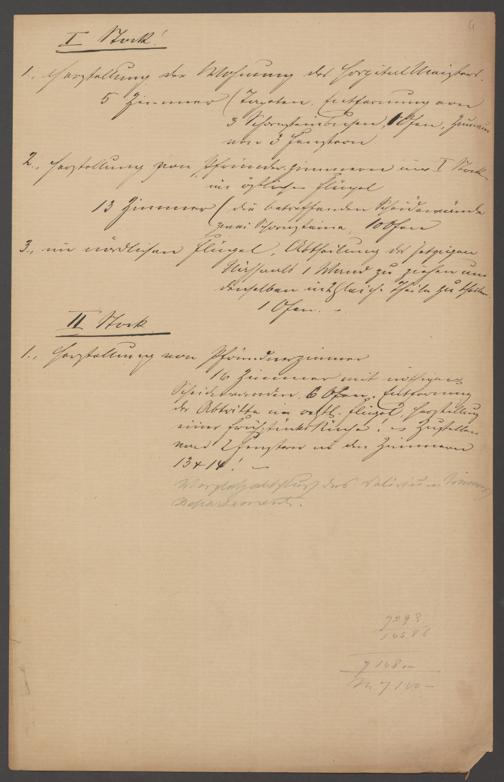 4
I Stock!
1., Herstellung der Wohnung des Hospitalmeisters.
5 Zimmer (Tapeten, Entfernung von
3 Schornsteinen, 1 Ofen,
von 3 Fenstern
2., Herstellung von Pfründerzimmern im I Stock
im östlichen Flügel
13 Zimmer (die betreffenden Scheidewände
zwei Schornsteine, 10 Ofen
3., im nördlichen Flügel, Abtheilung des jetzigen
1 Wand zu ziehen um
denselben in 2 gleiche Theile zu theilen
1 Ofen. -
II Stock
1., Herstellung von Pfründnerzimmer
16 Zimmer mit nöthigen
Scheidewänden, 6 Ofen, Entfernung
der Abtritte im östl. Flügel, Herstellung
einer Küche!
von 2 Fenster in den Zimmern
13 & 14! -
des
7293
7168 -
M 7100 -